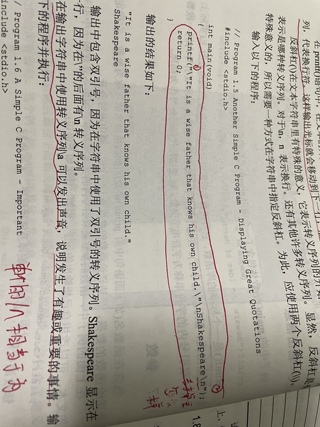 在printf
列, 代表换行符,这样输出光标就会移到下
表示是哪种转义序列, 对于\n, n 表示换行。还有其他许多转义序列。显然, 反斜杠
特殊意义, 所以需要一种方式在字符串中指定反斜杠。为此, 应使用两个反斜杠(\\)。
输入以下的程序,
// Program 1.5 Another Simple C Program - Displaying Great Quotations
#include <stdio.h>
int main(void)
printf("\"It is a wise father that knows his own child.\"\nShakespeare\n");
return 0;
输出的结果如下:
"It is a wise father that knows his own child."
Shakespeare
输出中包含双引号, 因为在字符串中使用了双引号的转义序列。Shakespeare 显示在
行, 因为在\"的后面有\n 转义序列。
在输出字符串中使用转义序列\a 可以发出声音, 说明发生了有趣或重要的事情。输
下的程序并执行:
/ Program 1.6 A Simple C Program - Important
include <stdio.h>